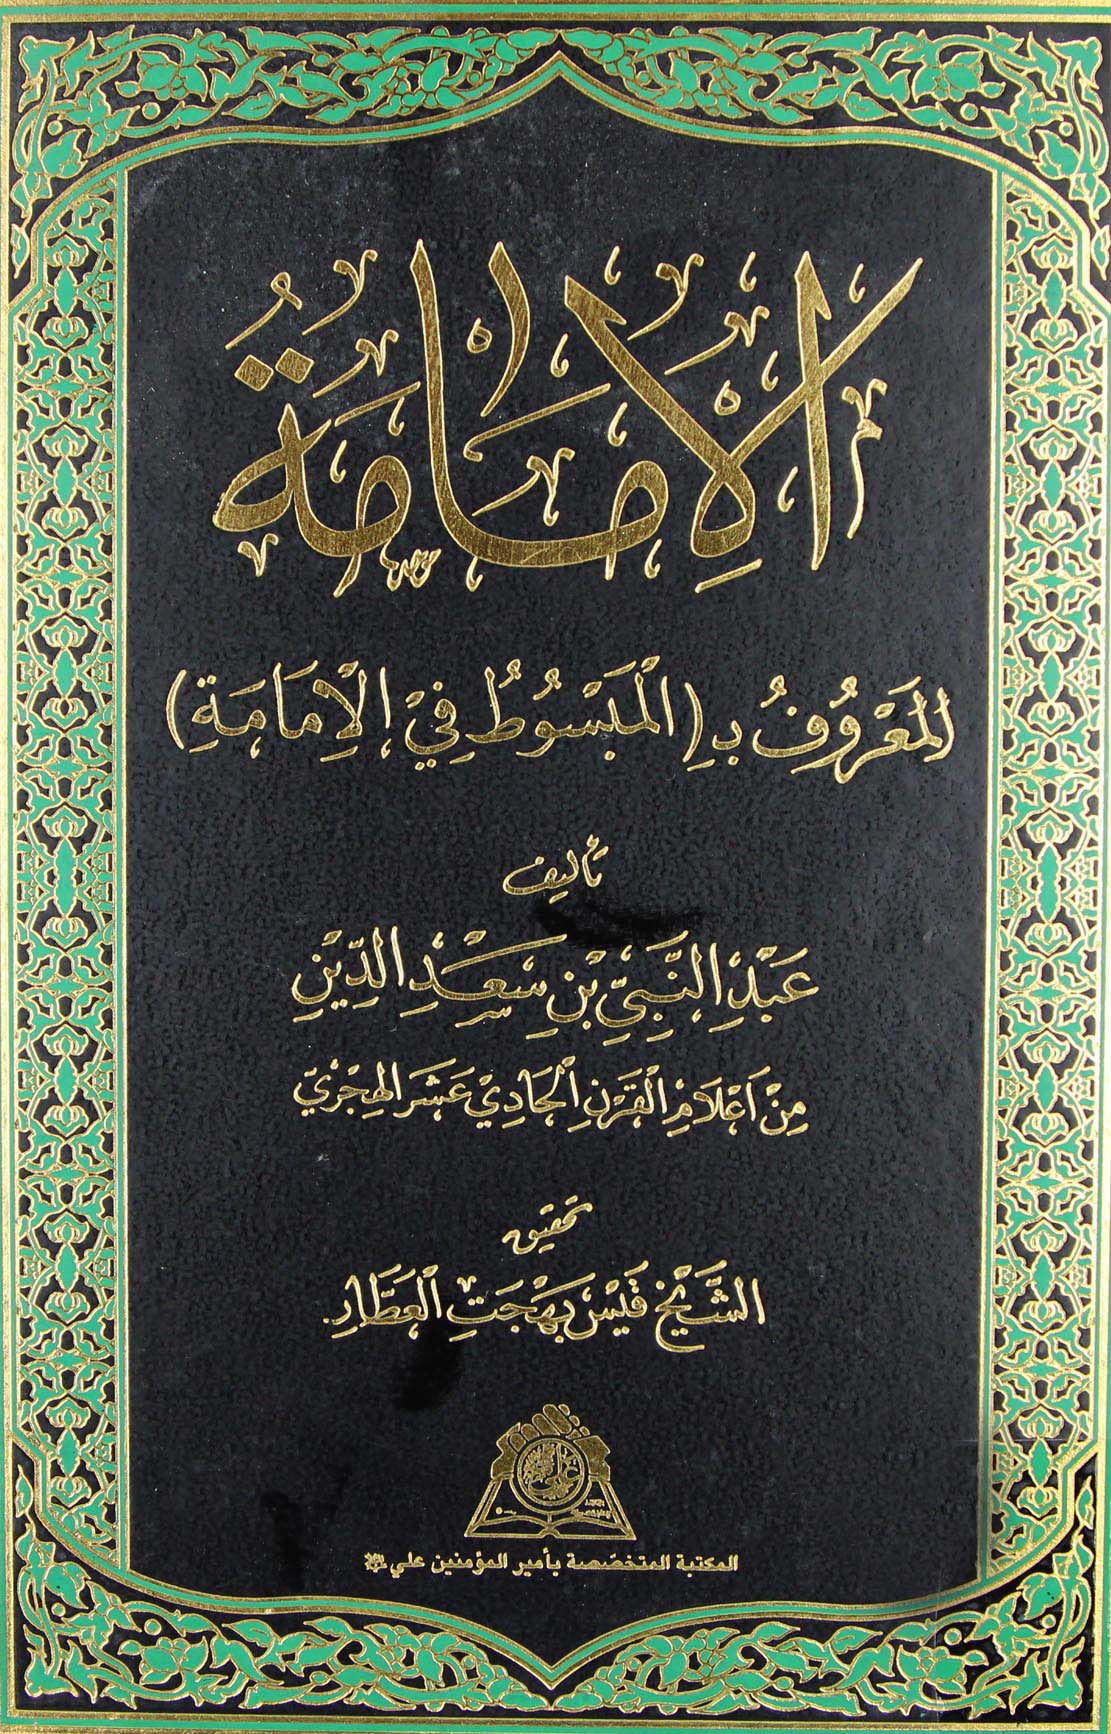 الإِمَامَةُ
المَعْرُوفُ بِـ (المَبْسُوطُ فِيْ الْإِمَامَةِ)
تأليف
عَبْدِ النَّبِيِّ بْنِ سَعْدِ الدِّيْنِ
مِنْ أَعْلَامِ الْقَرْنِ الْحَادِيْ عَشَرَ الهِجْرِيّ
تحقيق
الشَّيْخ قَيْسْ بَهْجَتِ الْعَطَّارِ
المكتبة المتخصّصة بأمير المؤمنين علي